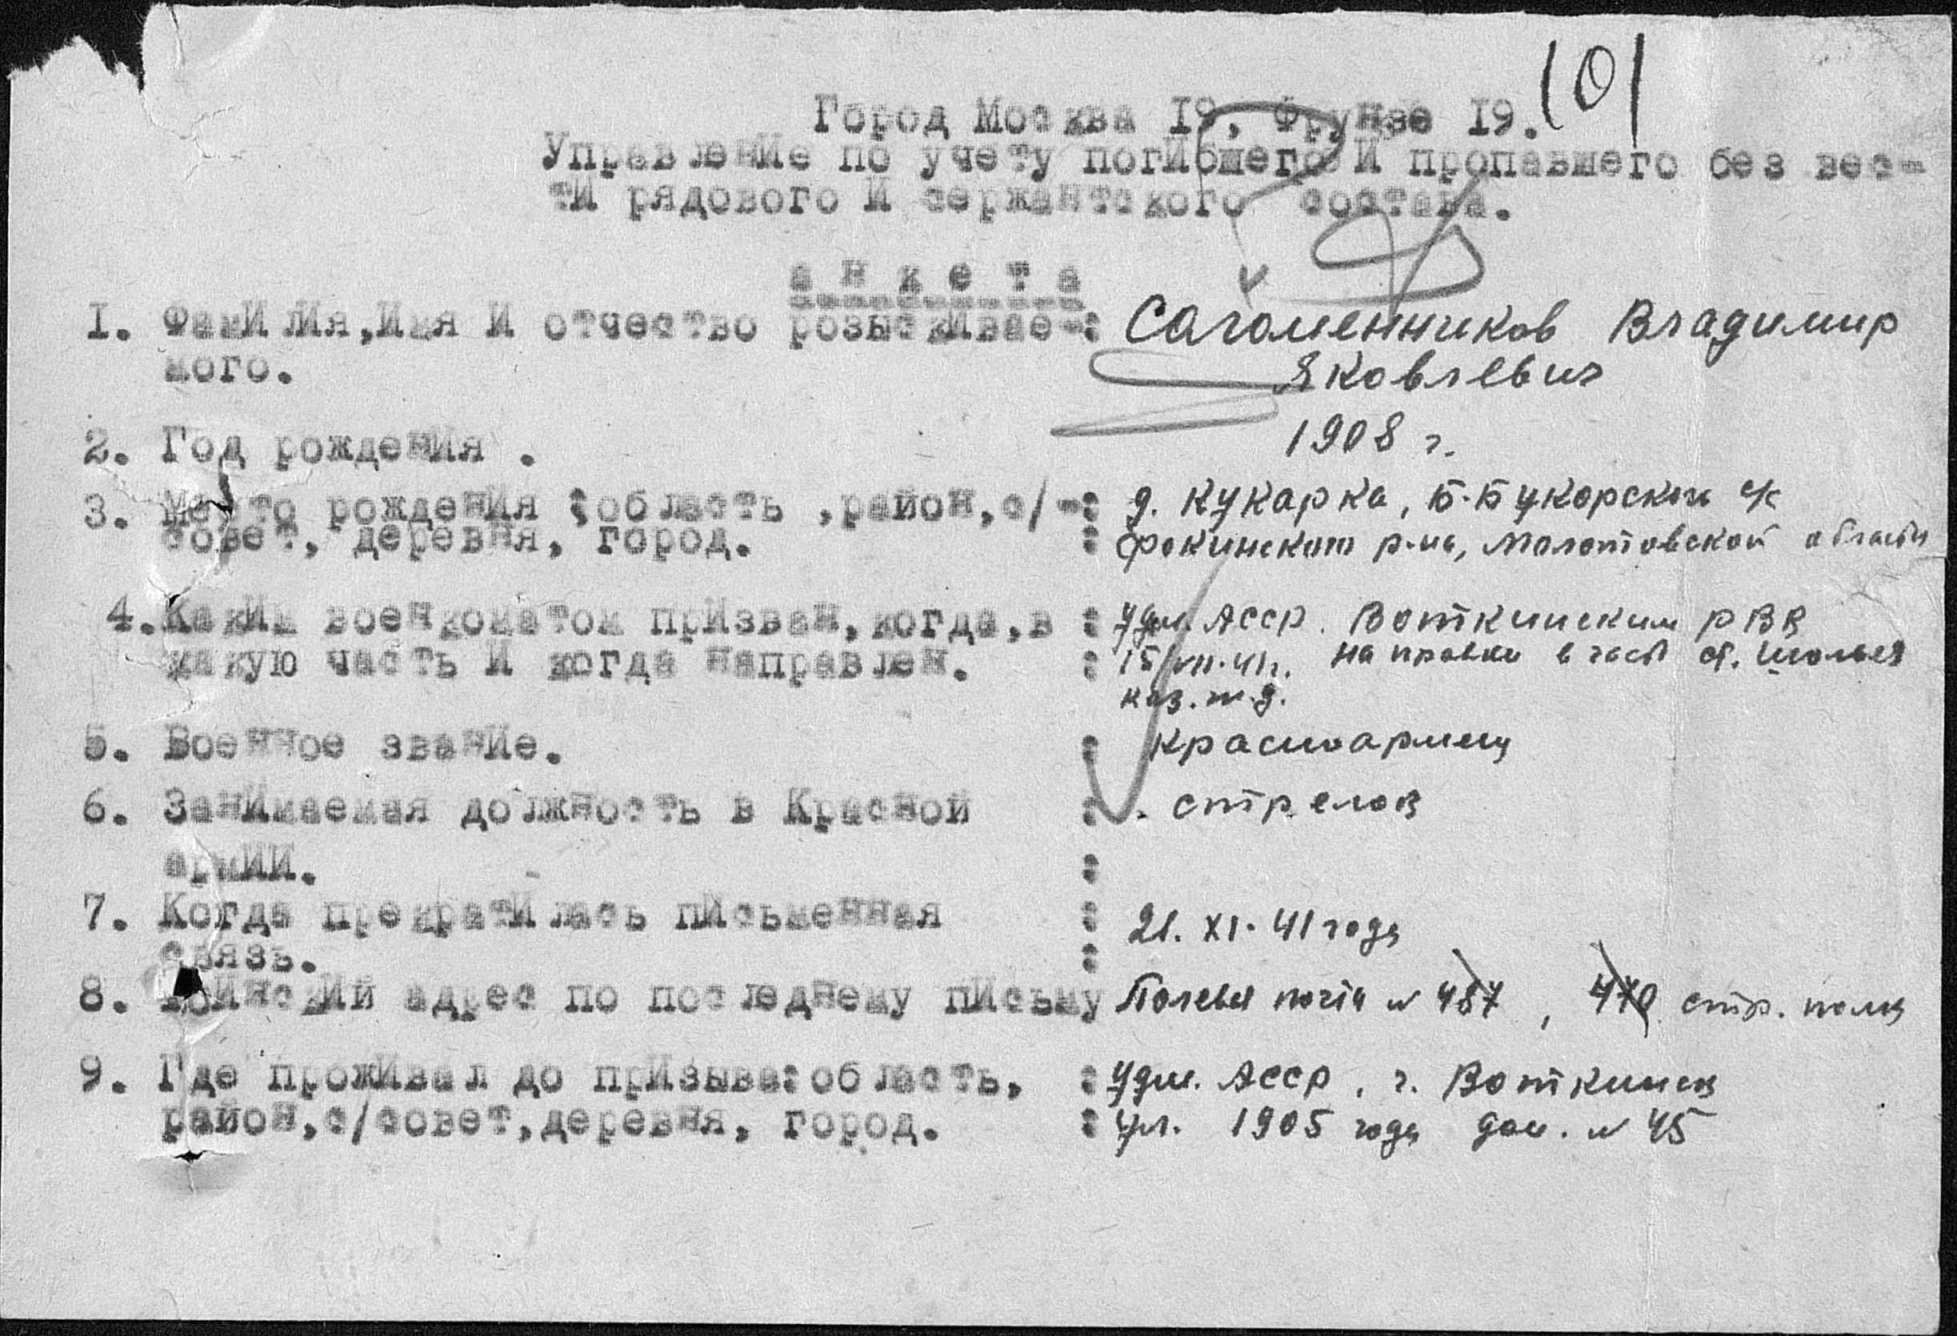 101
Город Москва 19, Фрунзе 19.
Управление по учету погибшего и пропавшего без вес-
ти рядового и сержантского состава.
анкета
1. Фамилия, Имя и отчество розыскивае-: Сапоменников Владимир
мого. Яковлевич
2. Год рождения . 1908 г.
3. Место рождения :область ,район,с/-: д. Кукарка, Б-Букорского с/с
совет, деревня, город. : Фокинского р-на, Молотовской области
4. Каким военкоматом призван,когда,в : Удм. АССР. Воткинским РВК
какую часть и когда направлен. : 15/VII-41г. направлен в часть ст.
каз. ж.д.
5. Военное звание. : красноармеец
6. Занимаемая должность в Красной : стрелок
армии. :
7. Когда прекратилась письменная : 21.XI-41 года
связь. :
8. Воинский адрес по последнему письму Полевая почта № 487, 470 стр. полк
9. Где проживал до призыва:область, : Удм. АССР, г. Воткинск
район,с/совет,деревня, город. : ул. 1905 года дом. № 45